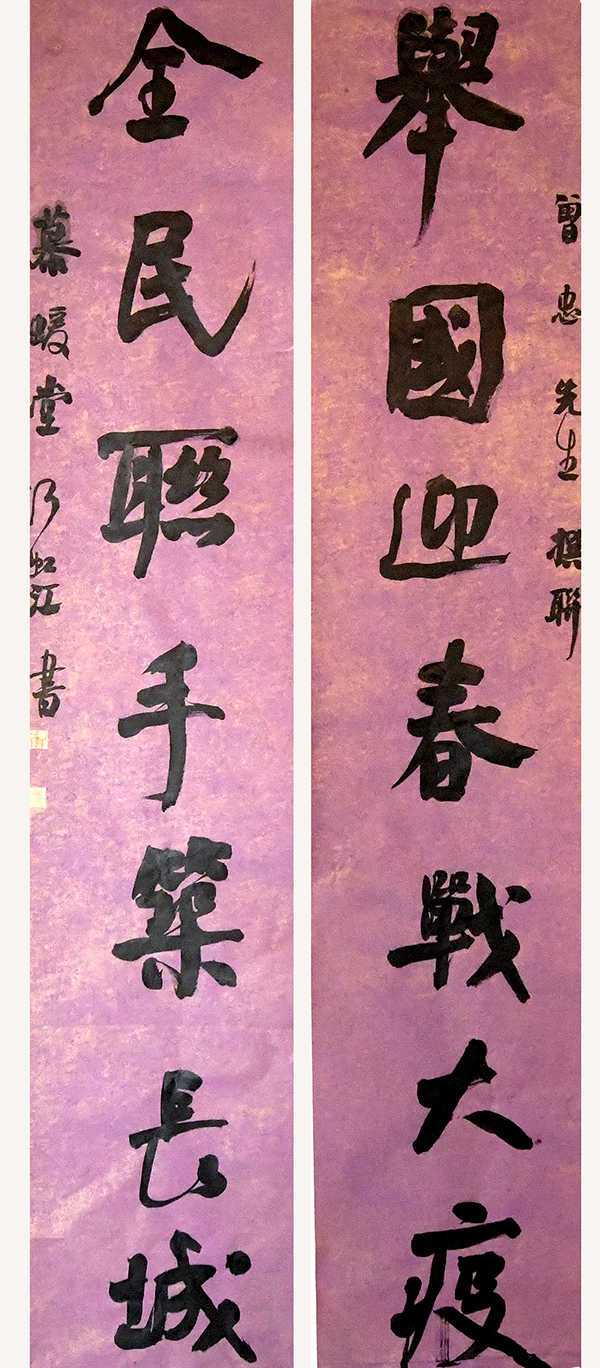 曾忠先生撰聯
舉國迎春戰大疫
全民聯手築長城
慕暖堂 江 書